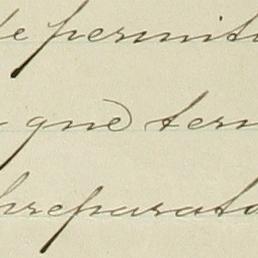 de permit
que ter
preparato